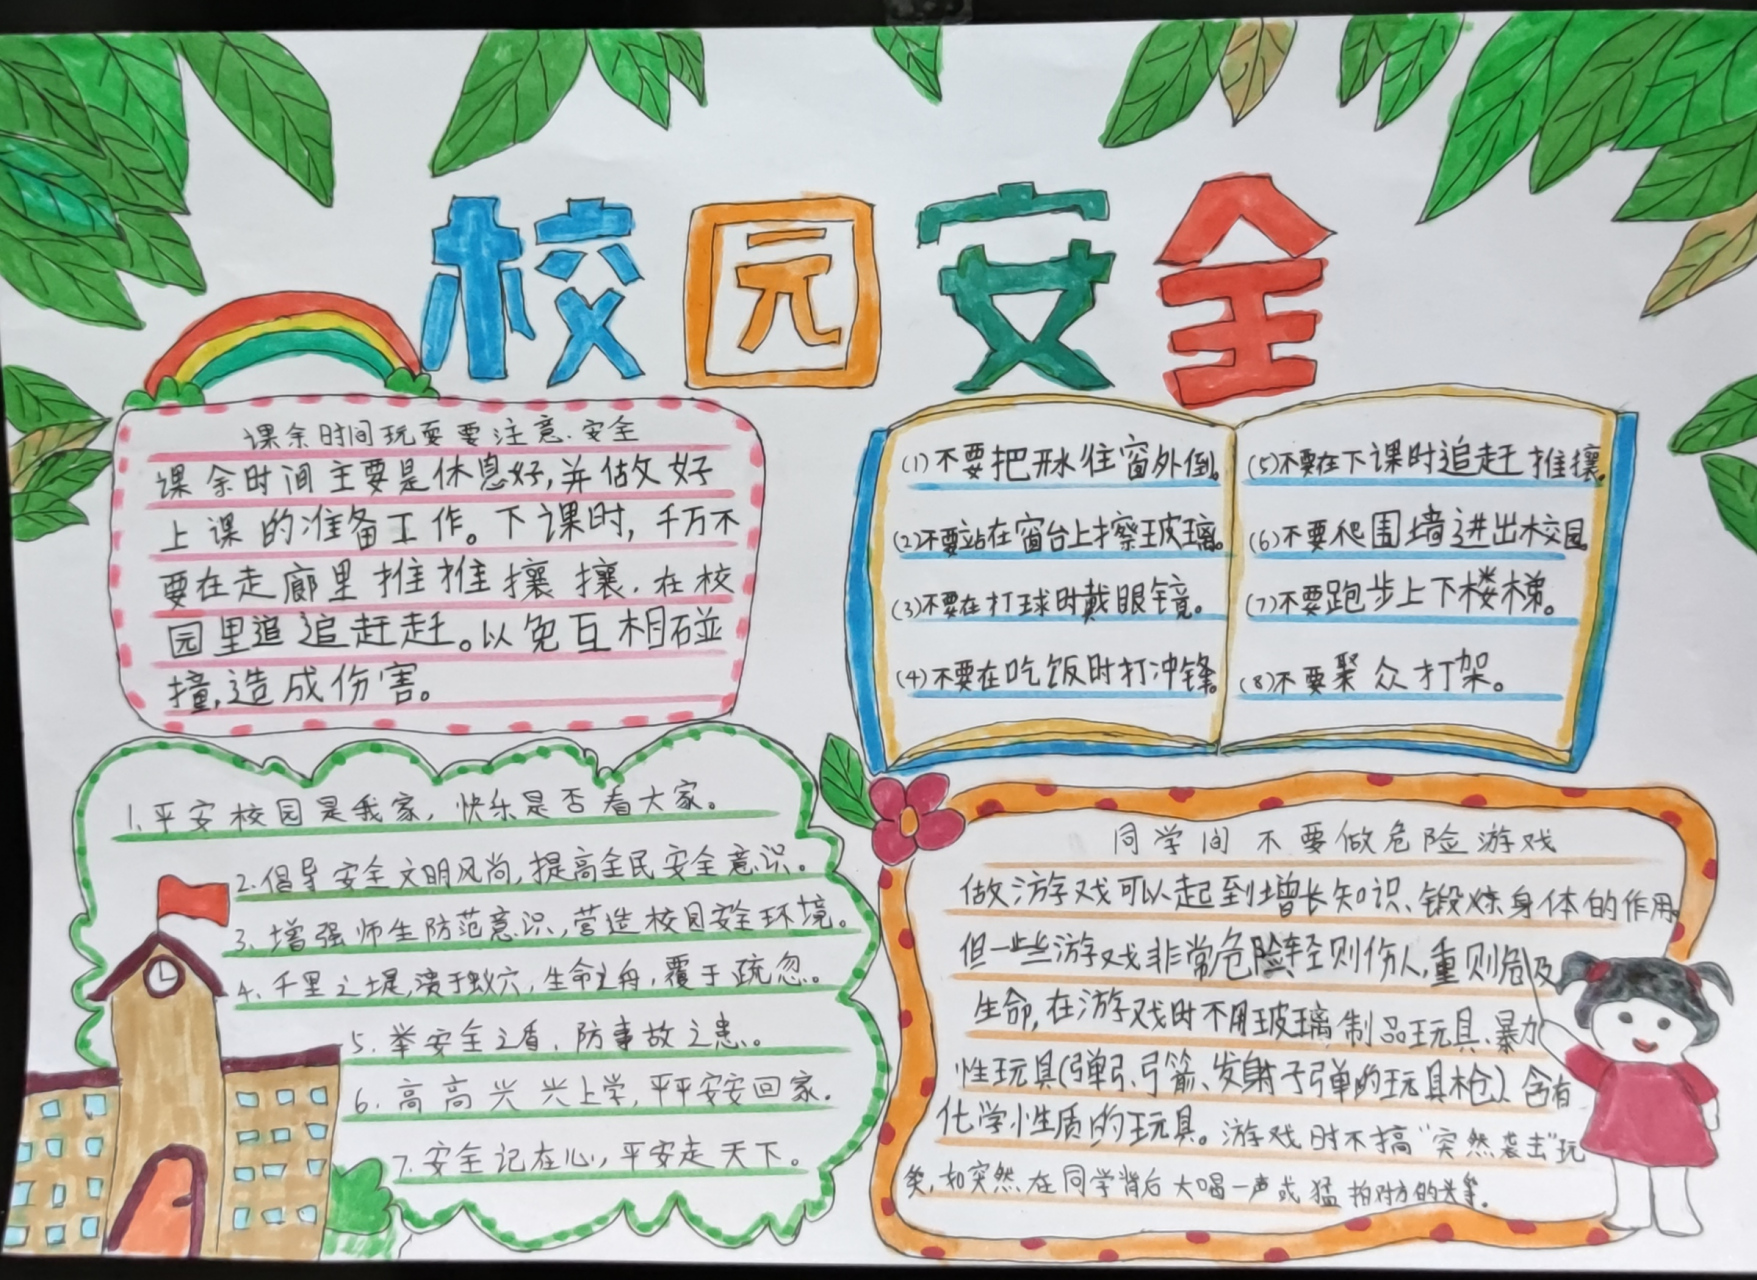 校园安全
课余时间玩耍要注意.安全
课余时间主要是休息好,并做好
上课的准备工作。下课时,千万不
要在走廊里推推攘攘.在校
园里追追赶赶。以免互相碰
撞,造成伤害。
(1)不要把水往窗外倒。
(2)不要站在窗台上擦玻璃。
(3)不要在打球时戴眼镜。
(4)不要在吃饭时打冲锋。
(5)不要在下课时追赶推攘。
(6)不要爬围墙进出校园
(7)不要跑步上下楼梯。
(8)不要聚众打架。
1.平安校园是我家,快乐是否看大家。
2.倡导安全文明风尚,提高全民安全意识。
3.增强师生防范意识,营造校园安全环境。
4.千里之堤,溃于蚁穴,生命之舟,覆于疏忽。
5.举安全之盾、防事故之患。
6.高高兴兴上学,平平安安回家.
7.安全记在心,平安走天下。
同学间不要做危险游戏
做游戏可以起到增长知识、锻炼身体的作用。
但一些游戏非常危险,轻则伤人,重则危及
生命,在游戏时不用玻璃制品玩具、暴力
性玩具(弹弓、弓箭、发射子弹的玩具枪)、含有
化学性质的玩具。游戏时不搞“突然袭击”玩
笑,如突然在同学背后大喝一声或猛拍对方的头等.